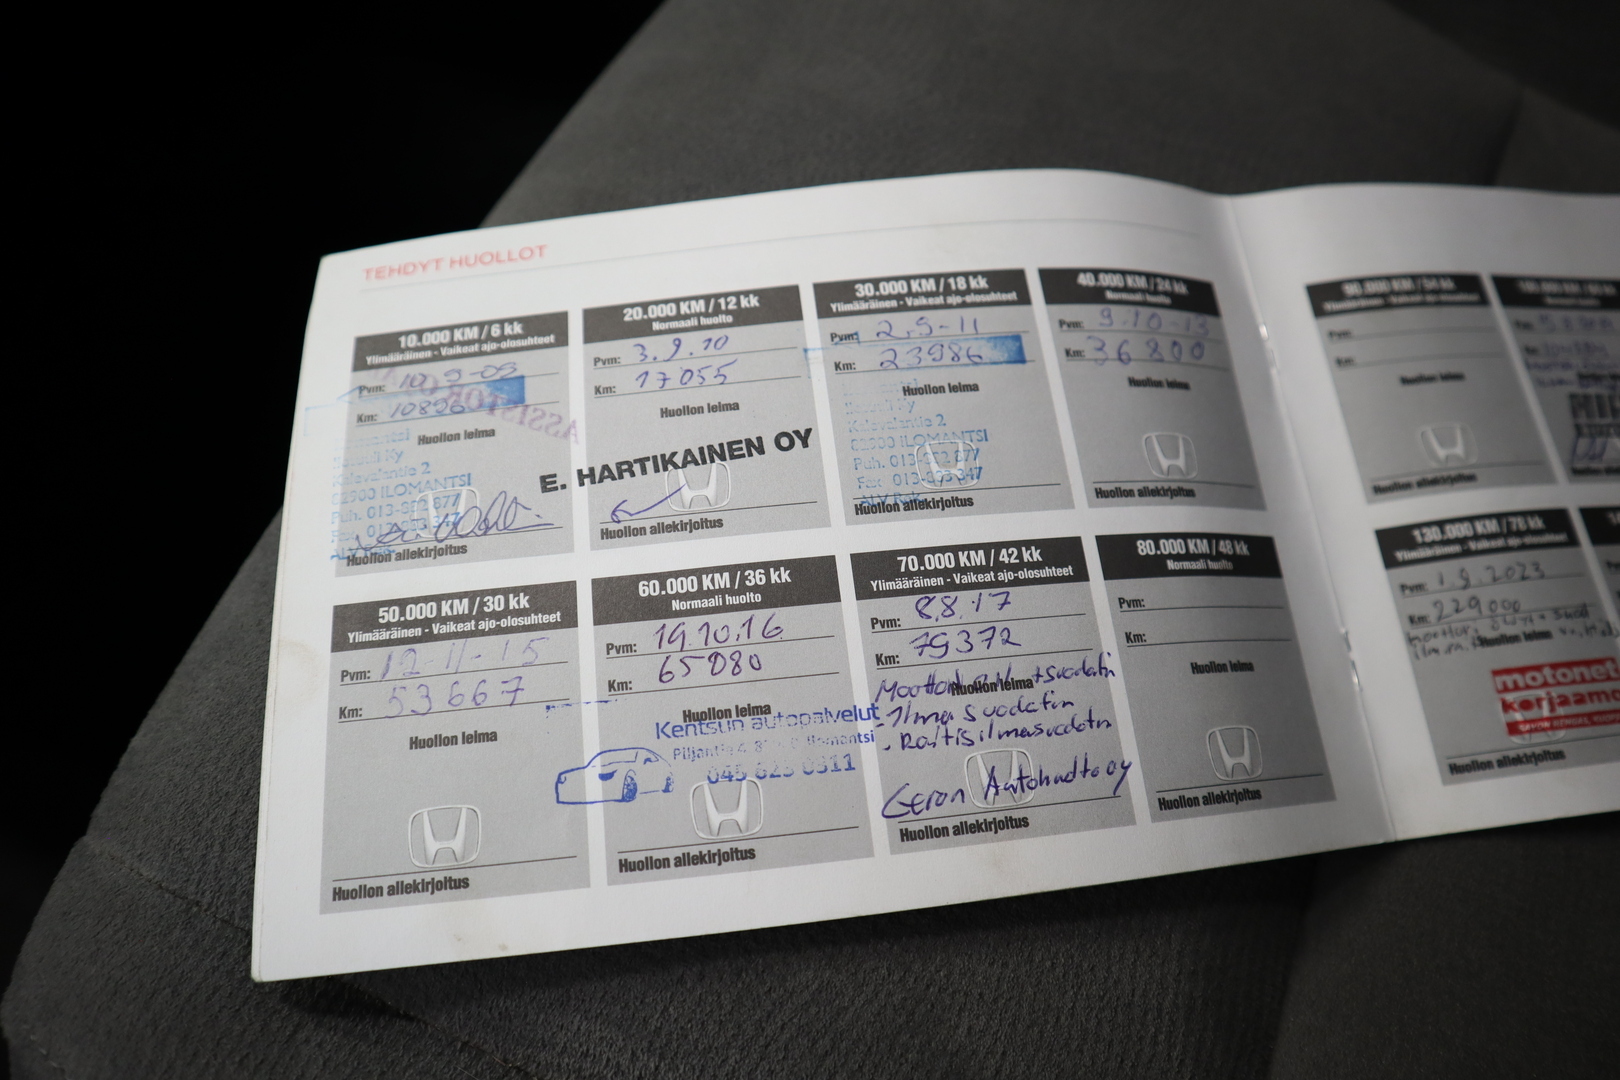 TEHDYT HUOLLOT
10.000 KM / 6 kk
Ylimääräinen - Vaikeat ajo-olosuhteet
Pvm: 10-9-09
Km: 10896
Huollon leima
Kalevalantie 2
82900 ILOMANTSI
Puh. 013-882 877
Huollon allekirjoitus
20.000 KM / 12 kk
Normaali huolto
Pvm: 3.9.10
Km: 17055
Huollon leima
E. HARTIKAINEN OY
Huollon allekirjoitus
30.000 KM / 18 kk
Ylimääräinen - Vaikeat ajo-olosuhteet
Pvm: 2.9-11
Km: 23986
Huollon leima
Kalevalantie 2
82900 ILOMANTSI
Puh. 013-882 877
Fax 013-883 347
Huollon allekirjoitus
40.000 KM / 24 kk
Normaali huolto
Pvm: 9.10-13
Km: 36800
Huollon leima
Huollon allekirjoitus
50.000 KM / 30 kk
Ylimääräinen - Vaikeat ajo-olosuhteet
Pvm: 12-11-15
Km: 53667
Huollon leima
Huollon allekirjoitus
60.000 KM / 36 kk
Normaali huolto
Pvm: 19.10.16
Km: 65080
Huollon leima
Kentsun autopalvelut
045 623 0311
Huollon allekirjoitus
70.000 KM / 42 kk
Ylimääräinen - Vaikeat ajo-olosuhteet
Pvm: 8.8.17
Km: 79372
Huollon leima
+suodatin
- Ilma suodatin
- Raitisilmasuodatin
Geron Autohuolto oy
Huollon allekirjoitus
80.000 KM / 48 kk
Normaali huolto
Pvm:
Km:
Huollon leima
Huollon allekirjoitus
90.000 KM / 54 kk
Pvm:
Km:
Huollon leima
Huollon allekirjoitus
130.000 KM / 78 kk
Ylimääräinen - Vaikeat ajo-olosuhteet
Pvm: 1.9.2023
Km: 229000
Huollon leima
motonet
korjaamo
Huollon allekirjoitus